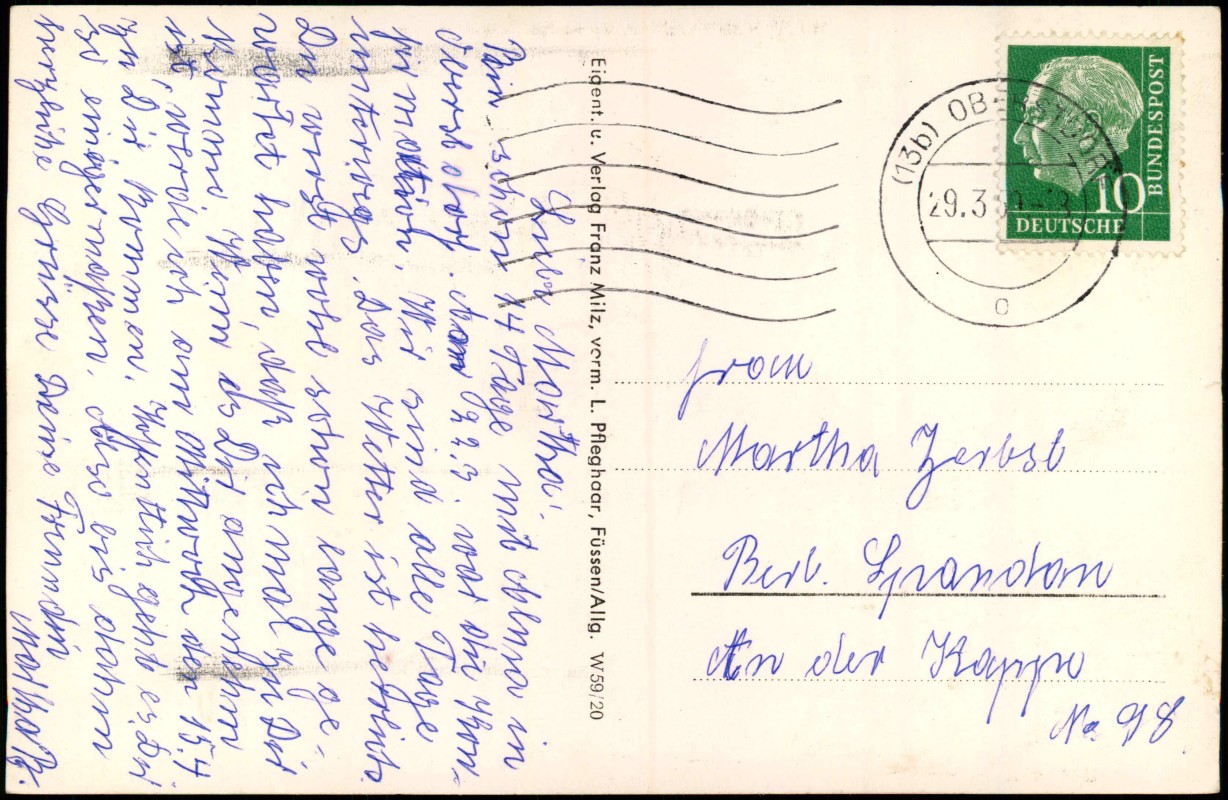 Liebe Martha!
Bin schon 14 Tage mit Elura in
Oberstdorf. Am 22.3. war die Kon-
firmation. Wir sind alle Tage
unterwegs. Das Wetter ist herrlich.
Du wirst wohl schon lange ge-
wartet haben, daß ich mal zu Dir
komme. Wenn es Dir angenehm
ist, werde ich am Mittwoch den 15.4
zu Dir kommen. Hoffentlich geht es Dir
so einigermaßen. Also bis dahin
herzliche Grüsse Deine Freundin
Eigent. u. Verlag Franz Milz, vorm. L. Pfleghaar, Füssen/Allg. W 59/20
(13b) OBERSTDORF
29.3
c
BUNDESPOST
10
DEUTSCHE
Frau
Martha Zerbst
Berl. Spandau
An der Kappe
No 98